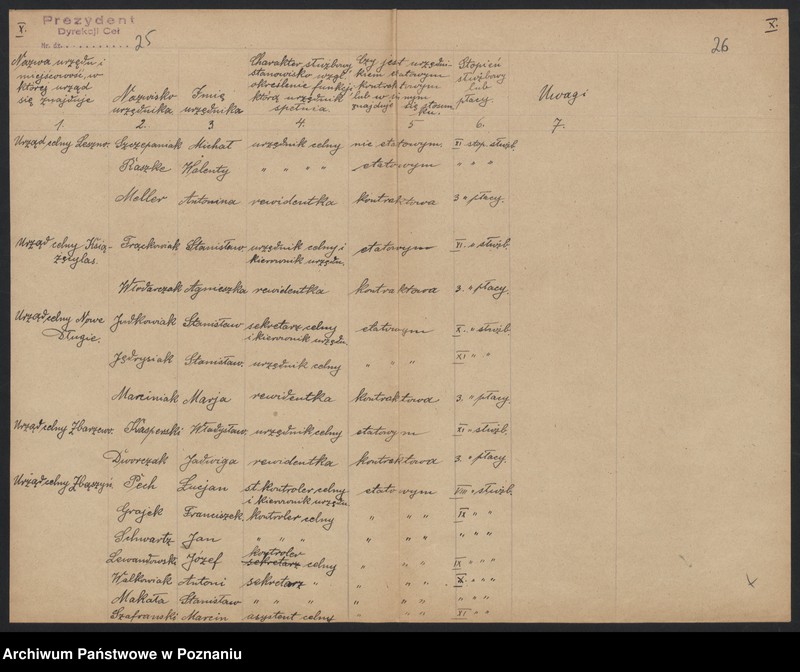 V.
Prezydent
Dyrekcji Ceł
Nr. dz.
25
26
X.
Nazwa urzędu i miejscowość, w której urząd się znajduje
Nazwisko urzędnika
Imię urzędnika
Charakter służbowy stanowisko wzgl. określenie funkcji którą urzędnik spełnia.
Czy jest urzędnikiem etatowym kontraktowym lub w innym znajduje się stosunku.
Stopień służbowy lub płacy.
Uwagi
1. 2. 3. 4. 5 6. 7.
Urząd celny Leszno. Szczepaniak Michał urzędnik celny nie etatowym. XI stop. służb.
Raszke Walenty " " " " etatowym " " "
Meller Antonina rewidentka kontraktowa 3 " płacy.
Urząd celny Książęcy las. Frąckowiak Stanisław urzędnik celny i kierownik urzędu. etatowym XI. " służb.
Włodarczak Agnieszka rewidentka kontraktowa 3. " płacy.
Urząd celny Nowe Długie. Judkowiak Stanisław sekretarz celny i kierownik urzędu. etatowym X. " służb.
Jędrysiak Stanisław. urzędnik celny " " " XI " "
Marciniak Marja rewidentka kontraktowa 3. " płacy.
Urząd celny Zbarzewo. Kasperski Władysław. urzędnik celny etatowym XI " służb.
Dworczak Jadwiga rewidentka kontraktowa 3. " płacy.
Urząd celny Zbąszyń. Pech Lucjan st. kontroler celny i kierownik urzędu. etatowym VIII " służb.
Grajek Franciszek. kontroler celny " " " IX " "
Schwartz Jan " " " " " " " " "
Lewandowski Józef kontroler sekretarz celny " " " IX " " "
Walkowiak Antoni sekretarz " " " " X " " "
Makała Stanisław " " " " " " " " "
Szafranski Marcin asystent celny " " " XI " "
Archiwum Państwowe w Poznaniu